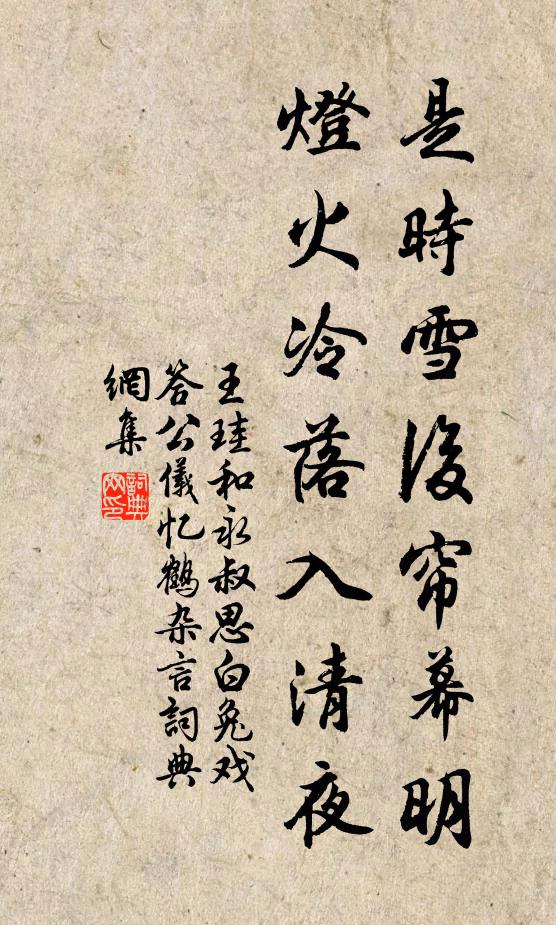 是時雪後帘幕明
燈火冷落入清夜
王珪和永叔思白兔戏
答公儀忆鶴杂言詞典
網集
詞典
网印